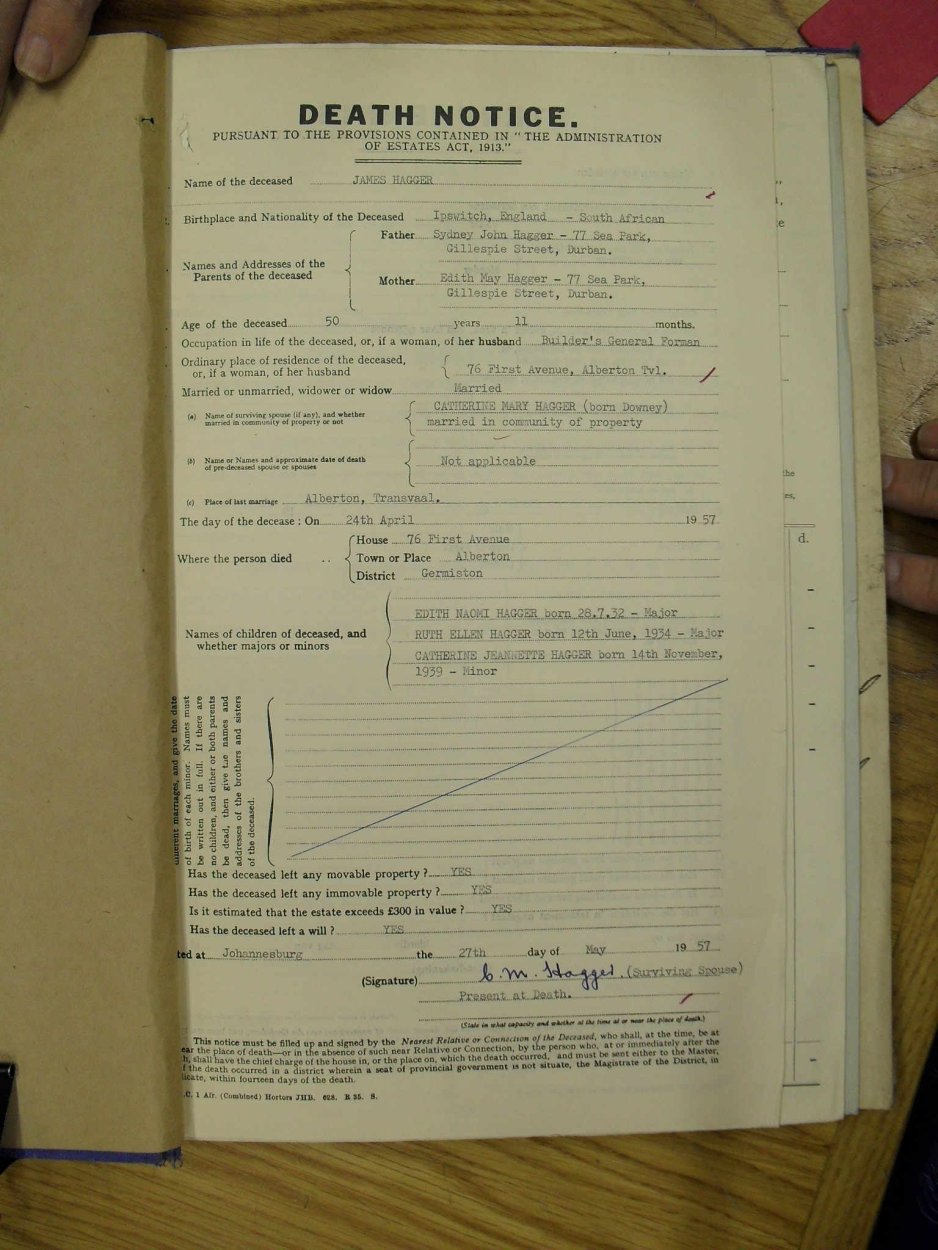 DEATH NOTICE.
PURSUANT TO THE PROVISIONS CONTAINED IN "THE ADMINISTRATION
OF ESTATES ACT, 1913."
Name of the deceased JAMES HAGGER
Birthplace and Nationality of the Deceased Ipswitch, England - South African
Names and Addresses of the Parents of the deceased
Father Sydney John Hagger - 77 Sea Park,
Gillespie Street, Durban.
Mother Edith May Hagger - 77 Sea Park,
Gillespie Street, Durban.
Age of the deceased 50 years 11 months.
Occupation in life of the deceased, or, if a woman, of her husband Builder's General Forman
Ordinary place of residence of the deceased,
or, if a woman, of her husband 76 First Avenue, Alberton Tvl.
Married or unmarried, widower or widow Married
(a) Name of surviving spouse (if any), and whether
married in community of property or not
CATHERINE MARY HAGGER (born Downey)
married in community of property
(b) Name or Names and approximate date of death
of pre-deceased spouse or spouses
Not applicable
(c) Place of last marriage Alberton, Transvaal.
The day of the decease : On 24th April 1957
Where the person died ..
House 76 First Avenue
Town or Place Alberton
District Germiston
Names of children of deceased, and
whether majors or minors
EDITH NAOMI HAGGER born 28.7.32 - Major
RUTH ELLEN HAGGER born 12th June, 1934 - Major
CATHERINE JEANNETTE HAGGER born 14th November,
1939 - Minor
marriages, and give the date
of birth of each minor. Names must
be written out in full. If there are
no children, and either or both parents
be dead, then give the names and
addresses of the brothers and sisters
of the deceased.
Has the deceased left any movable property ? YES
Has the deceased left any immovable property ? YES
Is it estimated that the estate exceeds £300 in value ? YES
Has the deceased left a will ? YES
ted at Johannesburg the 27th day of May 1957
(Signature) C. M. Hagger. (Surviving Spouse)
Present at Death.
(State in what capacity and whether at the time at or near the place of death.)
This notice must be filled up and signed by the Nearest Relative or Connection of the Deceased, who shall, at the time, be at
ear the place of death—or in the absence of such near Relative or Connection, by the person who, at or immediately after the
h, shall have the chief charge of the house in, or the place on, which the death occurred, and must be sent either to the Master,
f the death occurred in a district wherein a seat of provincial government is not situate, the Magistrate of the District, in
licate, within fourteen days of the death.
.C. 1 Afr. (Combined) Hortors JHB. 628. B 35. S.
the
es,
d.